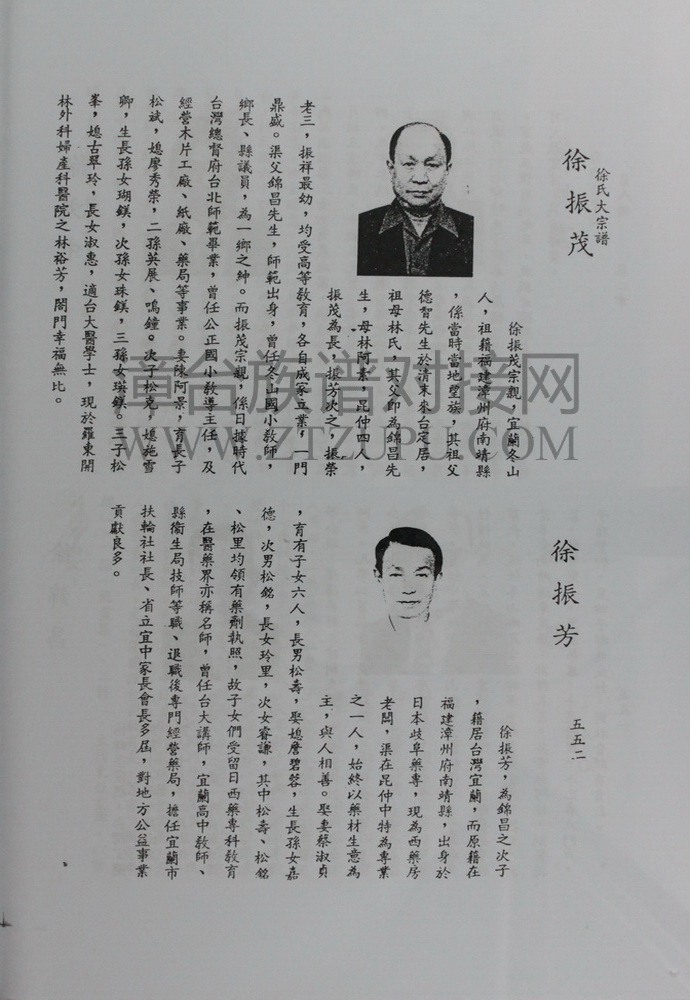 徐氏大宗譜
徐振茂
徐振茂宗親，宜蘭冬山
人，祖籍福建漳州府南靖縣
，係當時當地望族，其祖父
德智先生於清末來台定居，
祖母林氏，其父即為錦昌先
生，母林阿素，昆仲四人，
振茂為長，振芳次之，振榮
老三，振祥最幼，均受高等教育，各自成家立業，一門
鼎盛。渠父錦昌先生，師範出身，曾任冬山國小教師，
鄉長、縣議員，為一鄉之紳。而振茂宗親，係日據時代
台灣總督府台北師範畢業，曾任公正國小教導主任，及
經營木片工廠、紙廠、藥局等事業。妻陳阿景，育長子
松斌，媳廖秀榮，二孫英展、鳴鐘。次子松克，媳施雪
卿，生長孫女瑚鎂，次孫女珠鎂，三孫女瑛鎂。三子松
峯，媳古翠玲，長女淑惠，適台大醫學士，現於羅東開
林外科婦產科醫院之林裕芳，閤門幸福無比。
徐振芳
五五二
徐振芳，為錦昌之次子
，籍居台灣宜蘭，而原籍在
福建漳州府南靖縣，出身於
日本歧阜藥專，現為西藥房
老闆，渠在昆仲中特為專業
之一人，始終以藥材生意為
主，與人相善。娶妻蔡淑貞
，育有子女六人，長男松壽，娶媳詹碧蓉，生長孫女嘉
德，次男松銘，長女玲里，次女睿謙，其中松壽、松銘
、松里均領有藥劑執照，故子女們受留日西藥專科教育
，在醫藥界亦稱名師，曾任台大講師，宜蘭高中教師、
縣衞生局技師等職、退職後專門經營藥局，擔任宜蘭市
扶輪社社長、省立宜中家長會長多屆，對地方公益事業
貢獻良多。
章台族谱对接网
WWW.ZTZUPU.COM